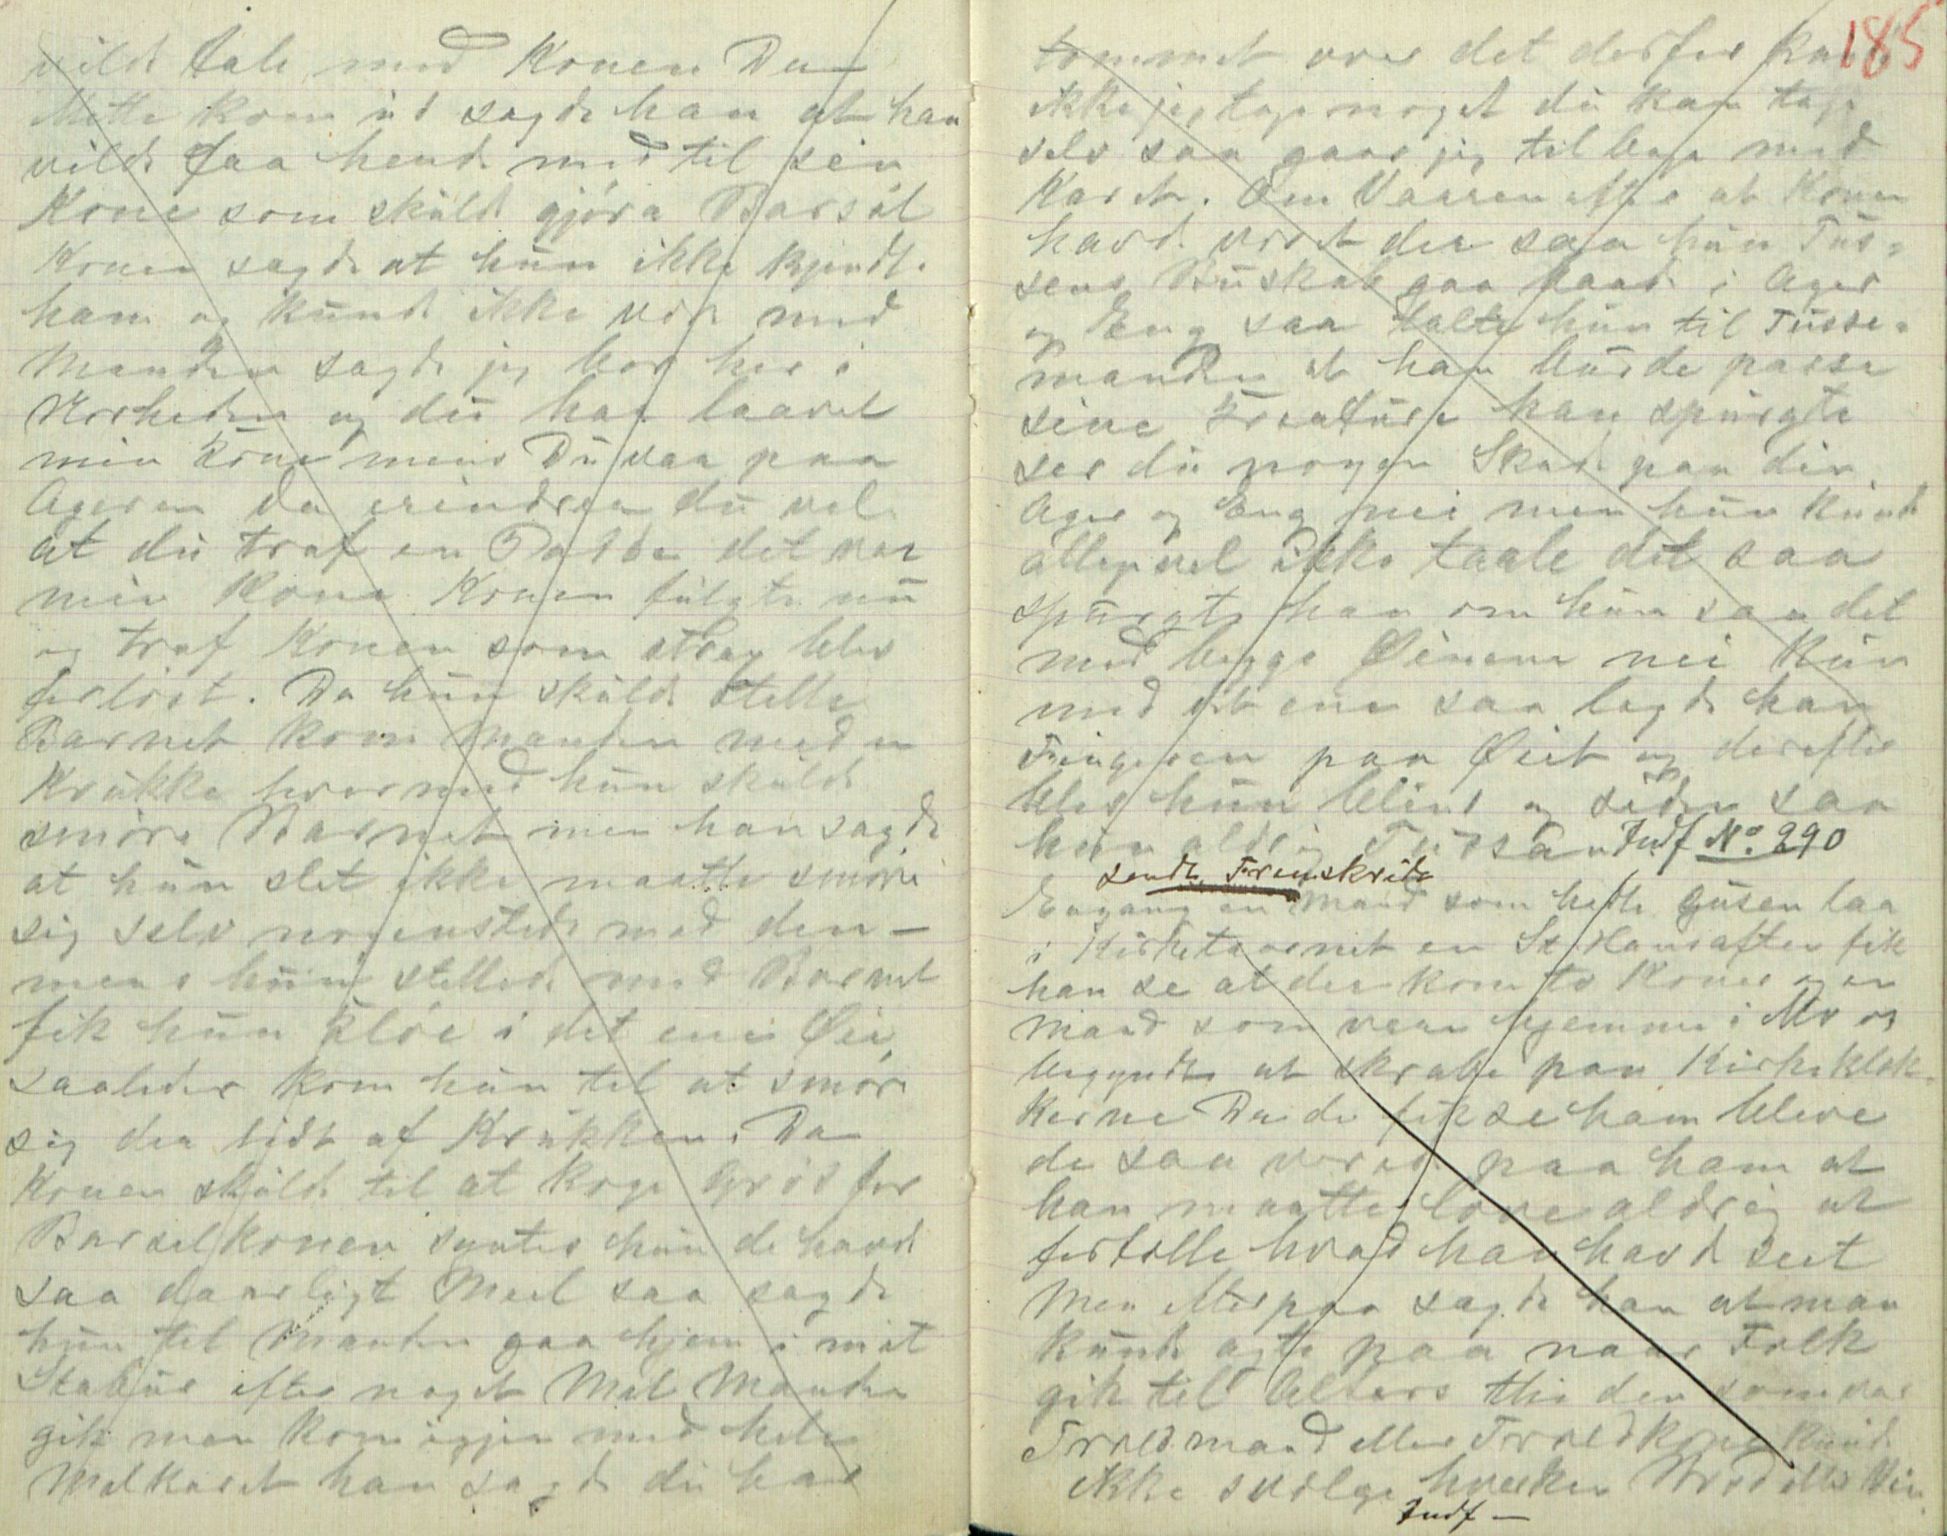 vilde tale med Konen Da
Mette kom ud sagde han at han
vilde faa hende med til sin
Kone som skuld gjøra Barsøl
Konen sagde at hun ikke kjendte
ham og kunde ikke vær med
Manden sagde jeg bor her i
Nærheden og du har laavet
min Kone mens Du vaa paa
Ageren da erindrer du vel
at du traf en Padde det var
min Kone Konen fulgte nu
og traf Konen som strax blev
forløst. Da hun skulde stelle
Barnet kom Manden med en
Krukke hvormed hun skulde
smøre Barnet men han sagde
at hun slet ikke maatte smøre
sig selv nogensteds med den –
mens hun stellede med Barnet
fik hun kløe i det ene Øie,
saaledes kom hun til at smøre
sig der lidt af Krukken. Da
Konen skulde til at koge Grød for
Barselkonen syntes hun de havde
saa daarligt Meel saa sagde
hun til Manden gaa hjem i mit
Stabur efter noget Mel Manden
gik men kom igjen med hele
Melkaret han sagde du har
185
kommet over det derfor kunde
ikke jeg tage noget du kan tage
selv saa gaar jeg tilbage med
Karet. Om Vaaren efter at Konen
havde vært der saa hun Tus-
sens Buskab gaa paa i Ager
og Eng saa talte hun til Tusse-
manden at han burde passe
sine Kreature han spurgte
ser du nogen Skade paa din
Ager og Eng nei men hun kunde
alligevel ikke taale det saa
spurgte han om hun saa det
med begge Øinene nei kun
med et ene saa lagde han
Fingeren paa Øiet og derefter
blev hun blind og siden saa
hun aldrig Tussan Indf No. 290
sendt Frenskrift
Engang en Mand som hette Gusen laa
i Kirketaarnet en St Hansaften fik
han se at der kom to Koner og en
Mand som vaar hjemme i Mo og
begyndte at skrabe paa Kirkeklok-
kerne Da de fik se ham bleve
de saa vrede paa ham at
han maatte love aldrig at
fortælle hvad han havde seet
Men efter paa sagde han at man
kunde agte paa naar Folk
gik til Alters thi den som var
Troldmand eller Troldkone kunde
ikke svolge hverken Brød eller Vin
Indf –